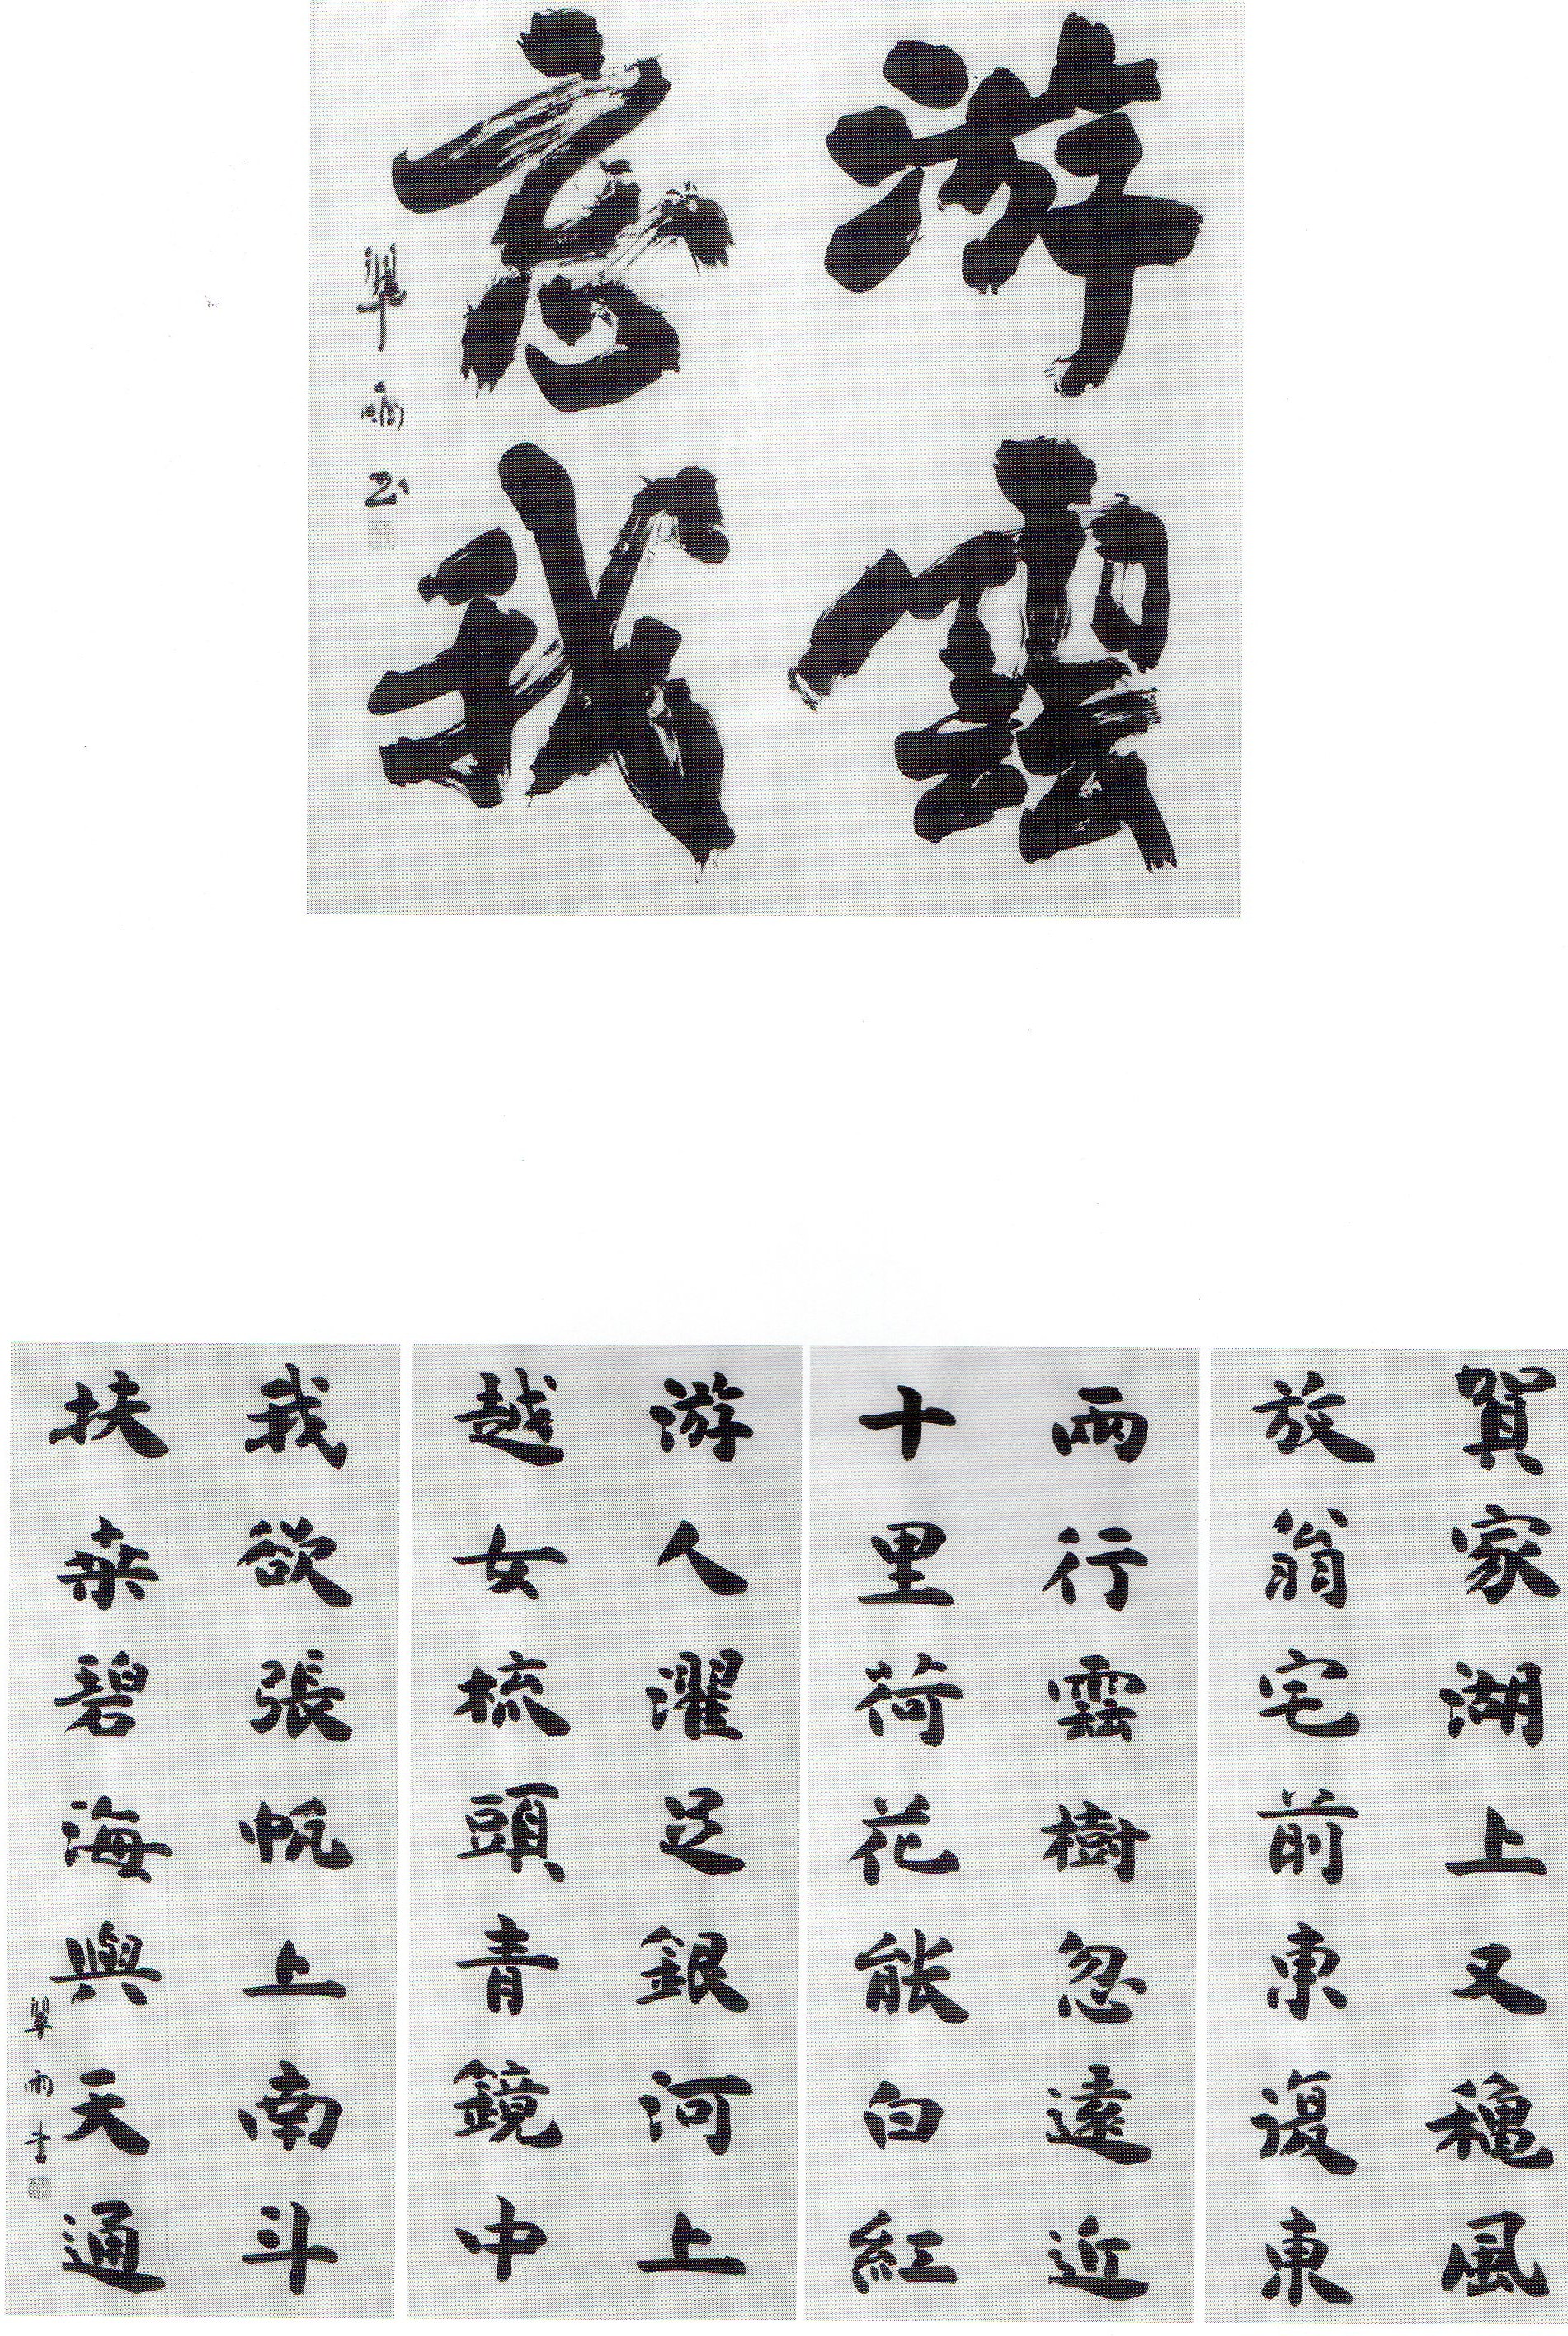 游雲
忘我
翠雨书
賀家湖上又穐風
放翁宅前東復東
兩行雲樹忽遠近
十里荷花能白紅
游人濯足銀河上
越女梳頭青鏡中
我欲張帆上南斗
扶桒碧海與天通
翠雨书